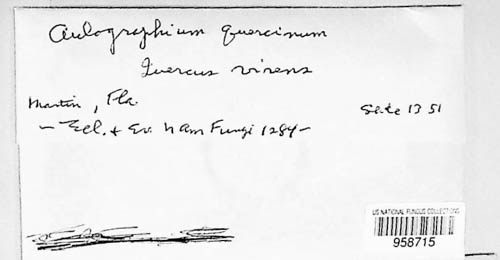 Aulographium quercinum
Quercus virens
Martin, Fla.
Slide 1351
– Ell. & Ev. N Am Fungi 1284 –
US NATIONAL FUNGUS COLLECTIONS
958715